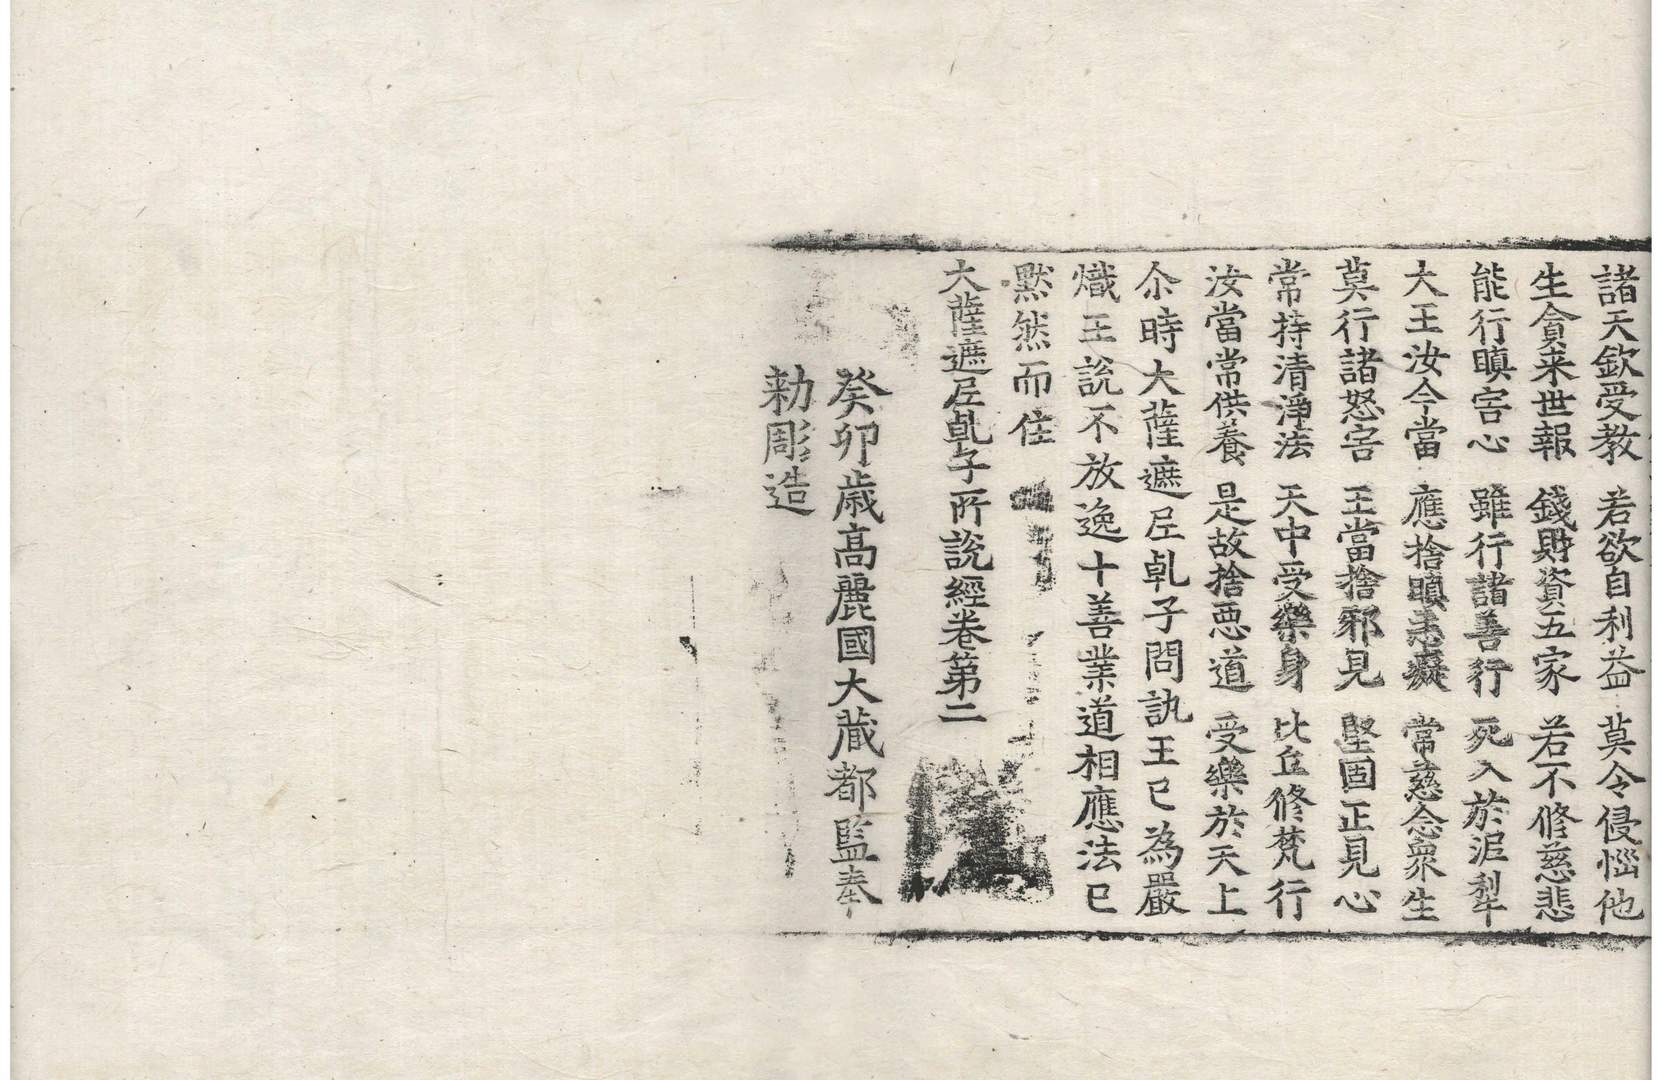 諸天欽受教　若欲自利益　莫令侵惱他
生貪来世報　錢財資五家　若不修慈悲
能行瞋害心　雖行諸善行　死入於泥犁
大王汝今當　應捨瞋恚癡　常慈念衆生
莫行諸怒害　王當捨邪見　堅固正見心
常持清淨法　天中受樂身　比丘修梵行
汝當常供養　是故捨惡道　受樂於天上
尒時大薩遮尼乹子問訊王已為嚴
熾王說不放逸十善業道相應法已
默然而住
大薩遮尼乹子所說經卷第二
癸卯歳高麗國大藏都監奉
勑彫造